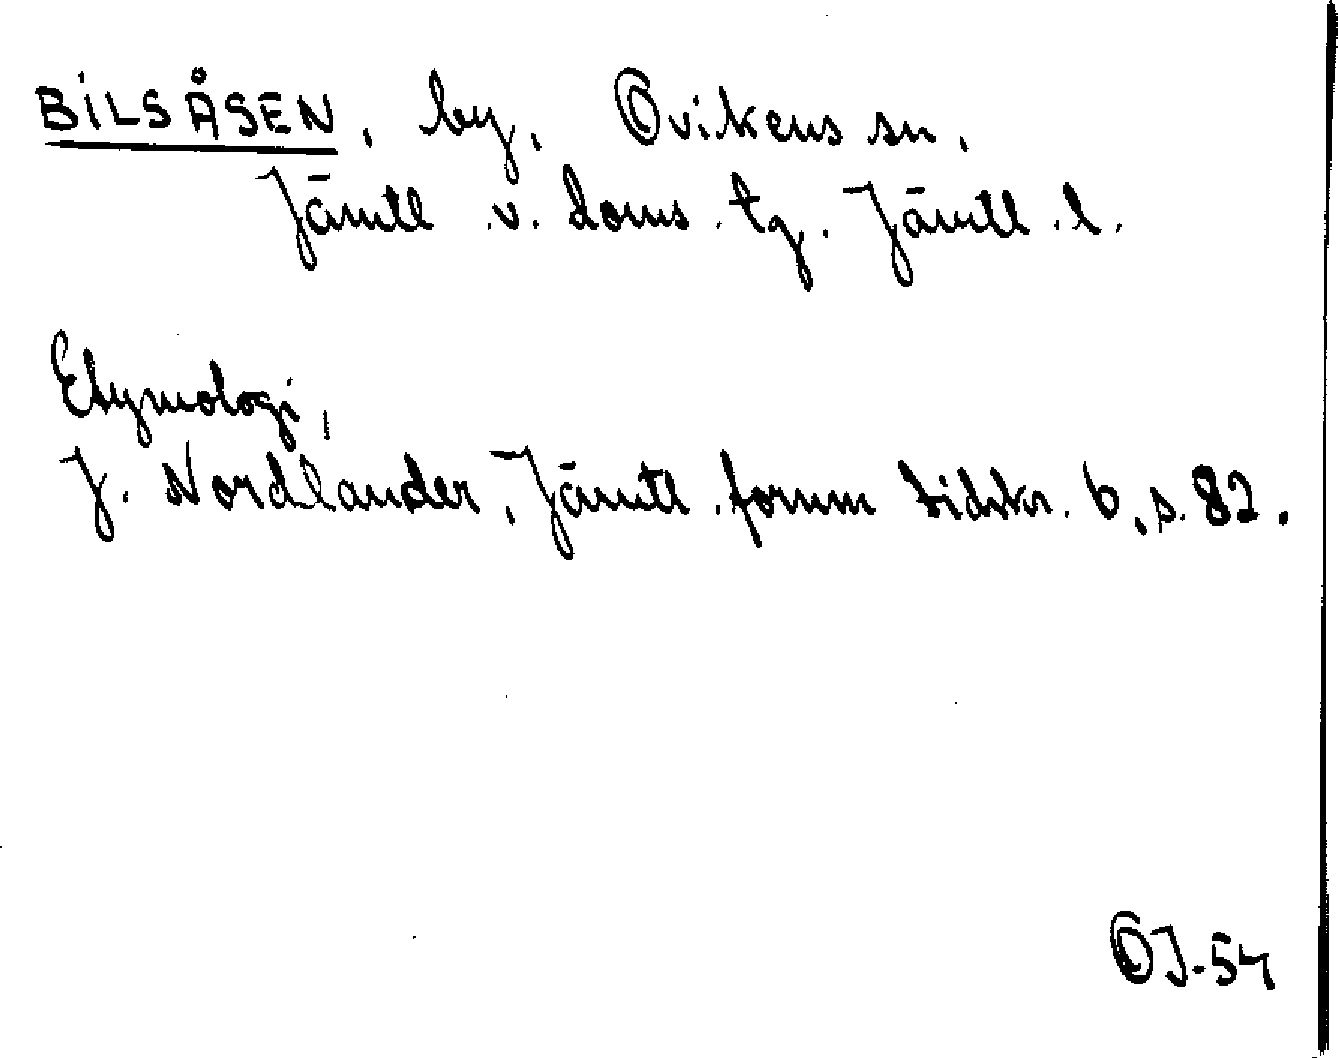 BILSÅSEN, by, Ovikens sn,
Jämtl. v. doms. tg. Jämtl. l.
Etymologi,
J. Nordlander, Jämtl. fornm tidskr. 6, s. 82.
OJ-54